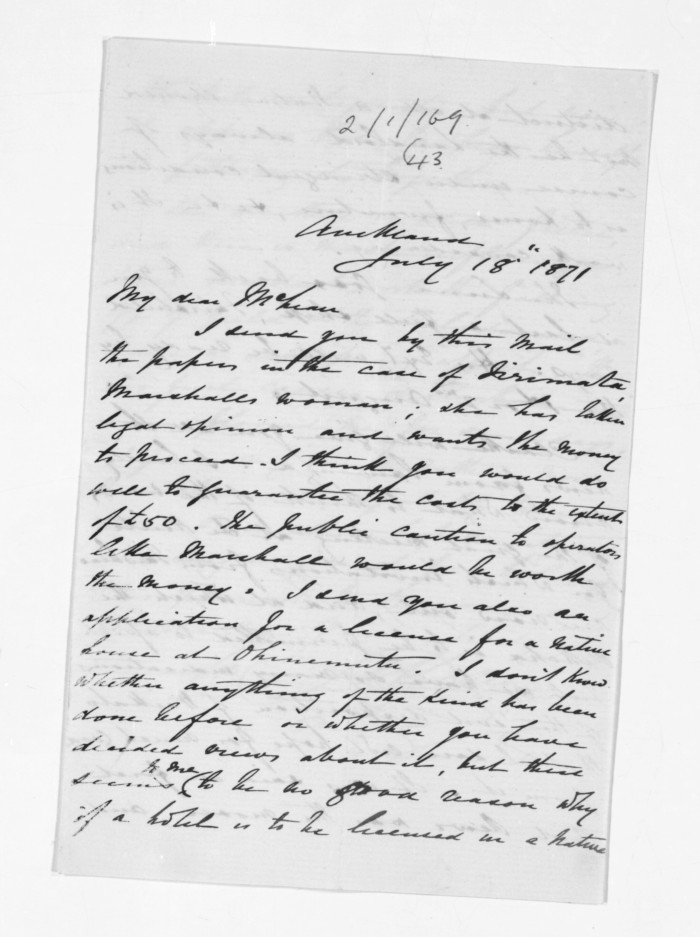 2/1/169
43
Auckland
July 18" 1871
My dear McLean
I send you by this mail
the papers in the case of Irimata,
Marshalls woman; she has taken
legal opinion and wants the money
to proceed. I think you would do
well to guarantee the costs to the extent
of £50. The public caution to operators
like Marshall would be worth
the money. I send you also an
application for a license for a native
house at Ohinemutu. I don't know
whether anything of the kind has been
done before or whether you have
decided views about it, but there
seems to me to be no good reason why
if a hotel is to be licensed in a native